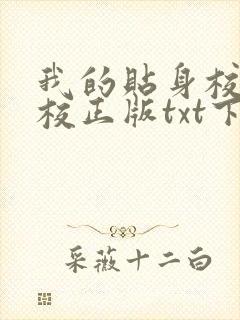 我的贴身校
校正版txt下
采薇十二白